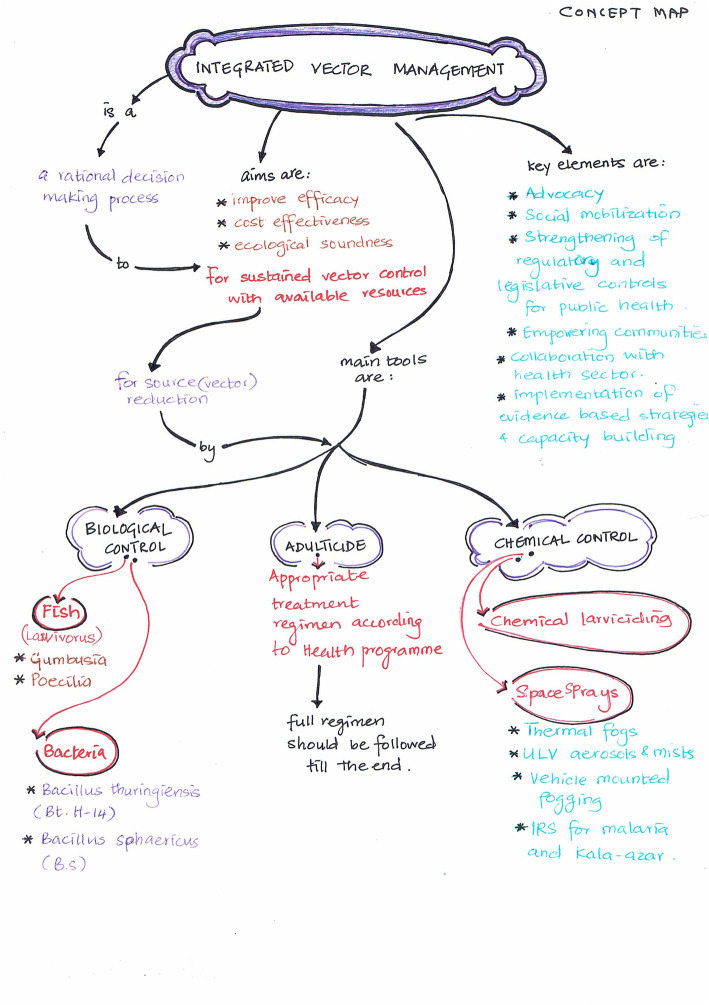 CONCEPT MAP
INTEGRATED VECTOR MANAGEMENT
is a
a rational decision
making process
to
aims are:
* improve efficacy
* cost effectiveness
* ecological soundness
for sustained vector control
with available resources
for source (vector)
reduction
by
main tools
are:
key elements are:
* Advocacy
* Social mobilization
* Strengthening of
regulatory and
legislative controls
for public health.
* Empowering communities
* Collaboration with
health sector.
* implementation of
evidence based strategies
& capacity building
BIOLOGICAL
CONTROL
Fish
(Larvivorus)
* Gumbusia
* Poecilia
Bacteria
* Bacillus thuringiensis
(Bt. H-14)
* Bacillus sphaericus
(B.S)
ADULTICIDE
Appropriate
treatment
regimen according
to Health programme
full regimen
should be followed
till the end.
CHEMICAL CONTROL
Chemical larviciding
Space Sprays
* Thermal fogs
* ULV aerosols & mists
* Vehicle mounted
fogging
* IRS for malaria
and Kala-azar.